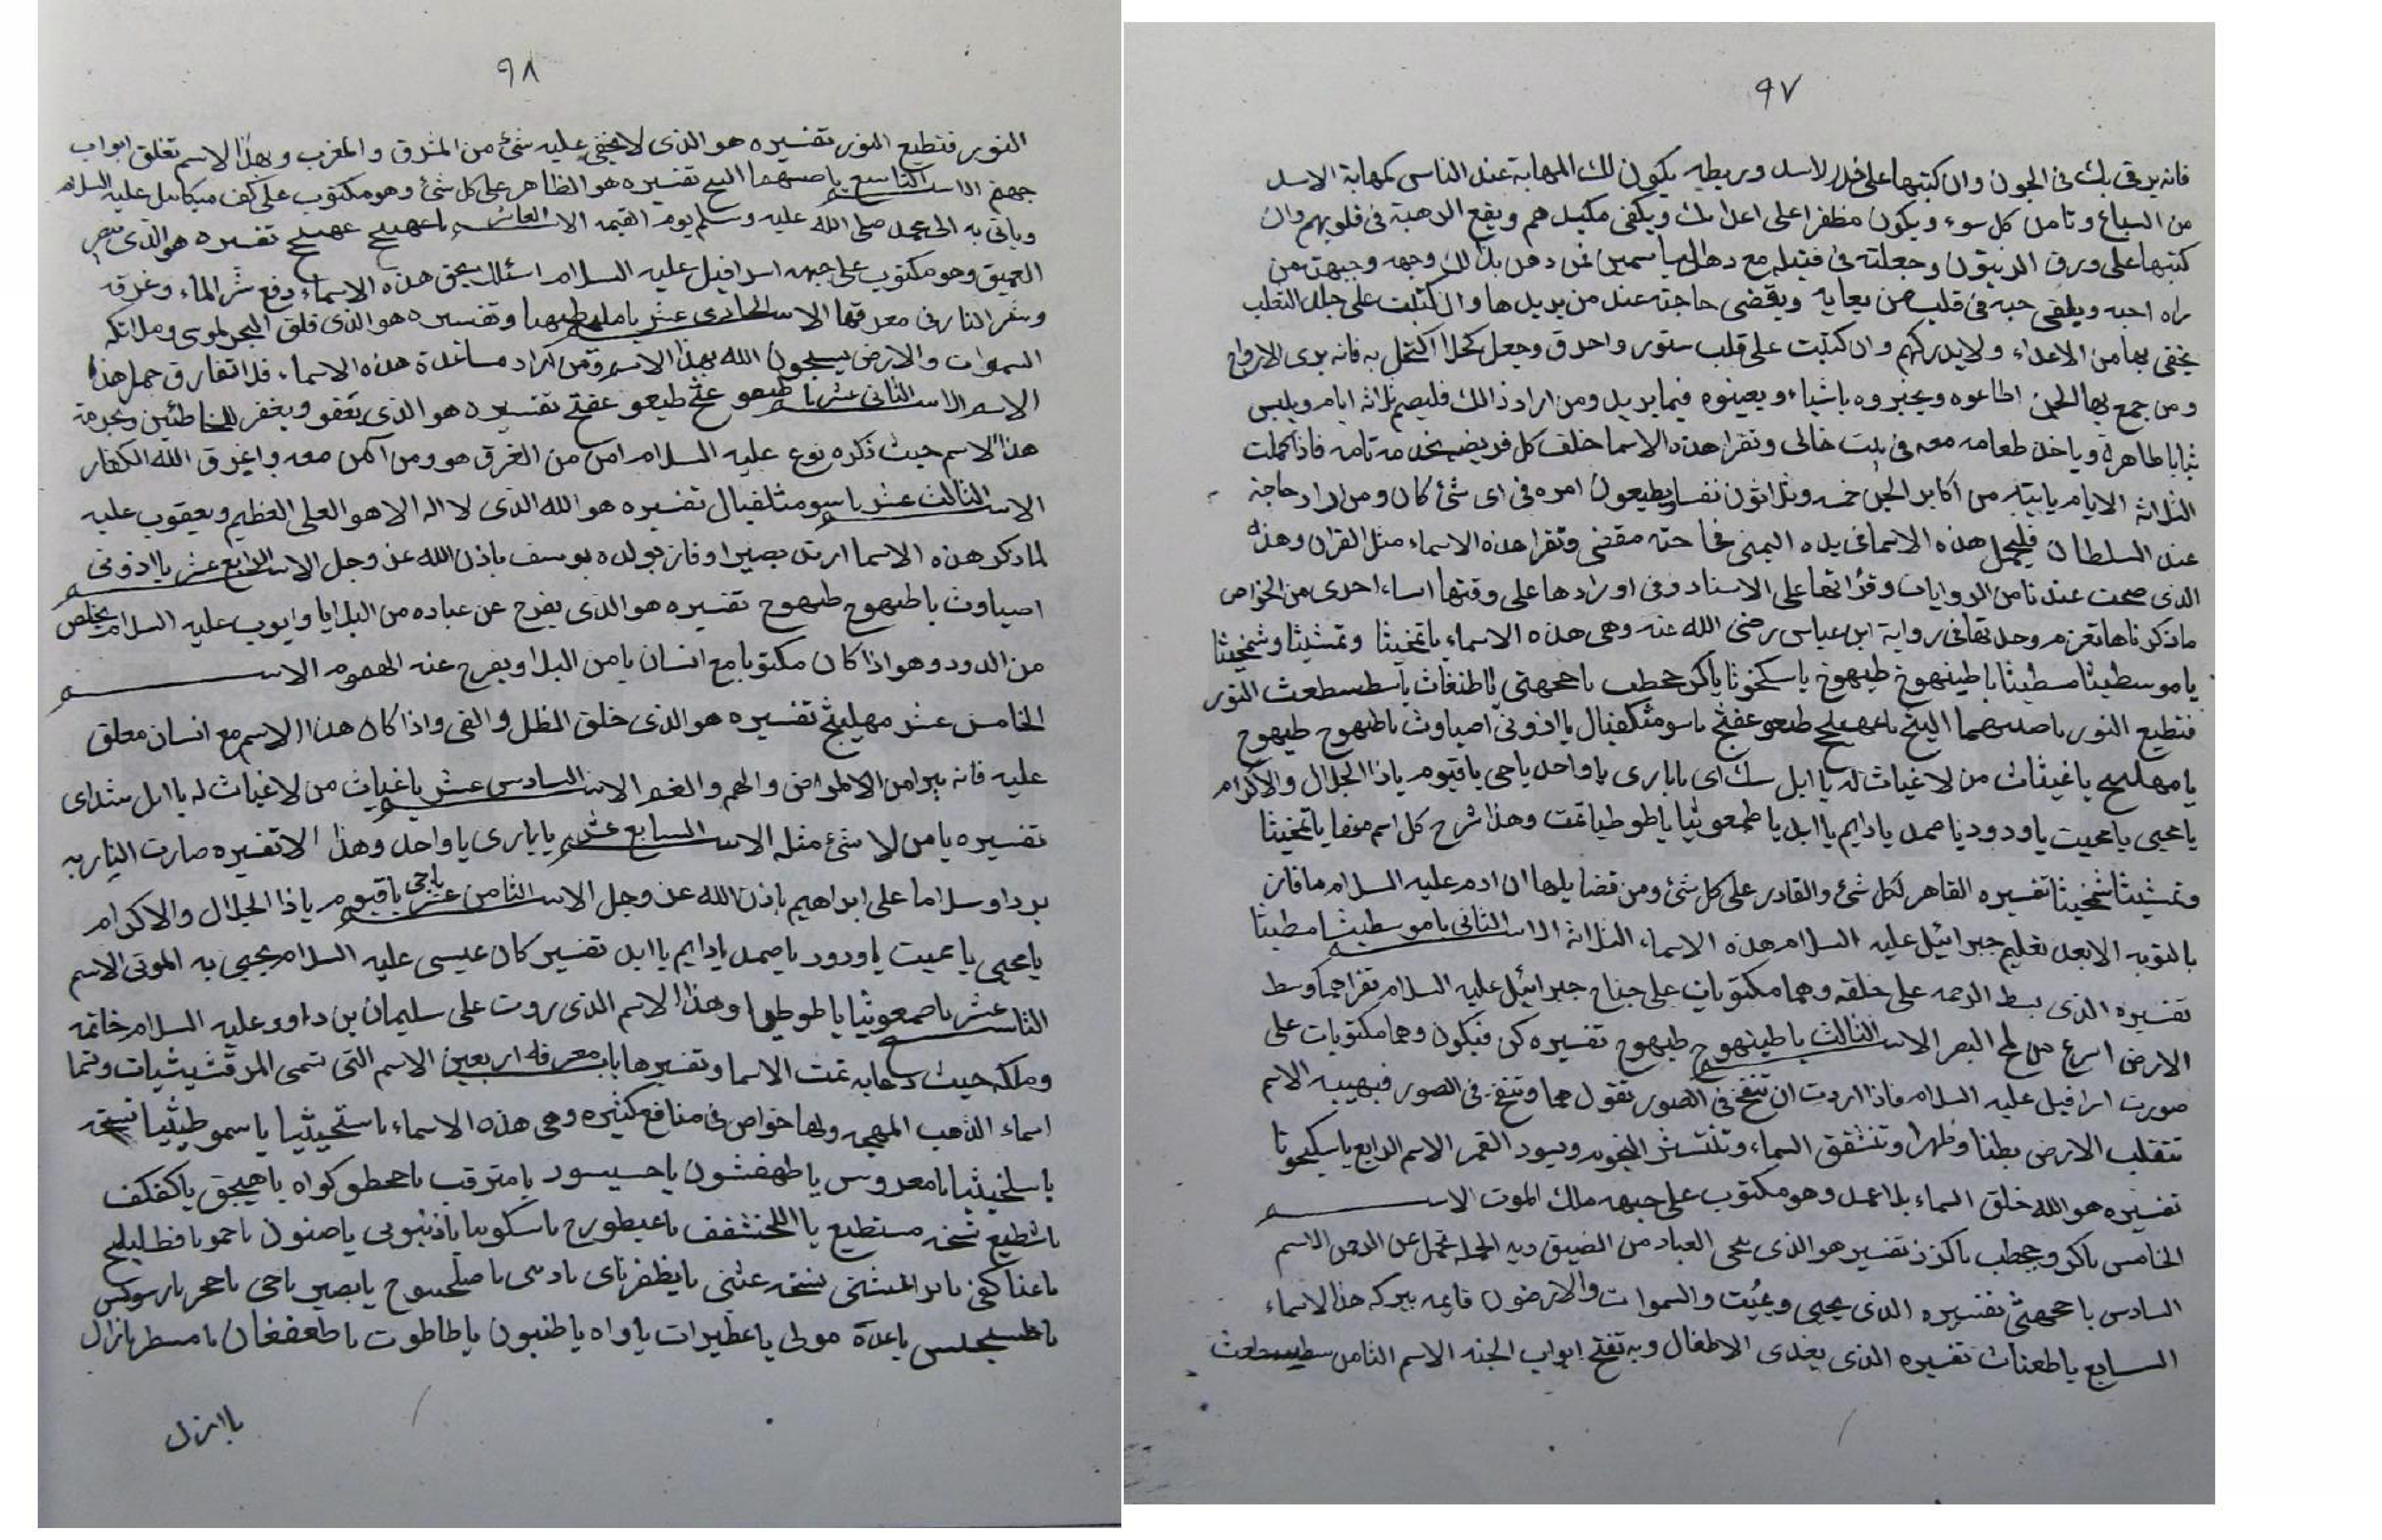 ٩٧
فانه يرقى بك فى الجون وان كتبتها على جلد لاسد وربطه يكون لك المهابة عند الناس كمهابة الاسد
من السباع وتامن كل سوء ويكون مظفرا على اعدايك ويكفى مكيدهم ويقع الرهبة فى قلوبهم وان
كتبتها على ورق الزيتون وجعلته فى فتيله مع دهن الياسمين فمن دهن بذلك وجهه وجبهته من
راه احبه ويلقى حبه فى قلب من يعايه ويقضى حاجته عند من يريدها وان كتبت على جلد الثعلب
يخفى بها من الاعداء ولا يدركهم وان كتبت على قلب سنور واحرق وجعل كحلا اكتحل به فانه يرى الارواح
ومن جمع بها الجن اطاعوه ويخبروه باشياء ويعينوه فيما يريد ومن اراد ذالك فليصم ثلاثه ايام ويلبس
ثيابا طاهرة وياخذ طعامه معه فى بيت خالى وتقرا هذه الاسما خلف كل فريضه تامه فاذا كملت
الثلاثة الايام يا بيته من اكابر الجن خمسه وثلاثون نفسا ويطيعون امره فى اى شئ كان ومن اراد حاجة
عند السلطان فليحمل هذه الاسما فى يده اليمنى فحاجته مقضى وتقرا هذه الاسماء مثل القران وهذه
الذى صحت عندنا من الروايات وقراتها على الاستاد وفى اورادها على وقتها اساء احدى من الخواص
ماذكرناها رواية ابن عباس رضى الله عنه وهى هذه الاسماء يا تمخيثا وتمشيثا وشمخيثا
يا موسطيثا مسطيثا يا طينهوج طيهوج يا سكنحوثا ياكر ححطب يا حجهتى يا طنغاث يا سطسطعث النور
فتطيع النور يا صدسهما اليخ يا عهيلج طيعو عفتج يا سومثلفيال يا اذونى اصياوث يا طيهوج طيهوج
يا مهليج يا غيثاث من لا غياث له يا ايل ساك اى يا بارى يا واحد يا حى يا قيوم يا ذا الجلال والاكرام
يا محيى يا مميت يا ودود يا صمد يا دايم يا ابد يا طمعوثيا يا طوطيا تمت وهذا شرح كل اسم منها يا تمخيثا
وتمشيثا شمخيثا تفسيره القاهر لكل شئ والقادر على كل شئ ومن فضايلها ان ادم عليه السلام ما فاز
بالتوبه الا بعد تعليم جبرائيل عليه السلام هذه الاسماء الثلاثة الاسم الثانى يا موسطيثا مطيثا
تفسيره الذى بسط الرحمه على خلقه وهما مكتوبات على جناح جبرائيل عليه السلام تقراهما وسط
الارض اسرع من لمح البصر الاسم الثالث يا طينهوج طيهوج تفسيره كن فيكون وهما مكتوبات على
صورت اسرافيل عليه السلام فاذا اردت ان تنفخ فى الصور تقول هما وتنفخ فى الصور فبهيبه الاسم
تنقلب الارض بطنا وظهرا وتنشقق السماء وتنتثر النجوم ويسود القمر الاسم الرابع يا سكيحوثا
تفسيره هو الله خلق السماء بلا عمد وهو مكتوب على جبهه ملك الموت الاسم
الخامس ياكر وححطب ياكرز تفسير هو الذى نجى العباد من الضيق وبه تحمل عن الرحمن الاسم
السادس يا حجهثى تفسيره الذى يحيى ويميت والسموات والارضون قايمه ببركه هذا الاسماء
السابع يا طعناث تفسيره الذى يغذى الاطفال وبه تفتح ابواب الجنه الاسم الثامن سطسطعث
٩٨
النور فتطيع النور تفسيره هو الذى لا يخفى عليه شئ من المشرق والمغرب وبهذا الاسم تغلق ابواب
جهنم الاسم التاسع يا صسهما اليع تفسيره هو الظاهر على كل شئ وهو مكتوب على كف ميكاييل عليه السلام
وياتى به الى محمد صلى الله عليه وسلم يوم القيمه الاسم العاشر يا عهيلج عهيلج تفسيره هو الذى
العميق وهو مكتوب على جبهه اسرافيل عليه السلام اسئلك بحق هذه الاسماء دفع شر الماء وغرقه
وشر النار فى معرقها الاسم الحادى عشر يا مليطهيا وتفسيره هو الذى فلق البحر لموسى وملائكه
السموات والارض يسبحون الله بهذا الاسم ومن اراد مساعدة هذه الاسماء فلا تفارق حمل هذا
الاسم الاسم الثانى عشر يا طيعو عثج طيعو عفتج تفسيره هو الذى يعفو ويغفر للخاطئين وبحرمة
هذا الاسم حيث ذكره نوح عليه السلام امن من الغرق هو ومن امن معه واغرق الله الكفار
الاسم الثالث عشر يا سومثلفيال تفسيره هو الله الذى لا اله الا هو العلى العظيم ويعقوب عليه
لما ذكر هذه الاسما ارتد بصيرا وفاز بولده يوسف باذن الله عز وجل الاسم الرابع عشر يا اذونى
اصياوث يا طيهوج طيهوج تفسيره هو الذى يفرج عن عباده من البلايا وايوب عليه السلام يخلص
من الدود وهو اذا كان مكتوبا مع انسان يا من البلا ويفرج عنه الهموم الاسم
الخامس عشر مهليثج تفسيره هو الذى خلق الظل والفى واذا كان هذا الاسم مع انسان معلق
عليه فانه يبرا من الامراض والهم والغم الاسم السادس عشر يا غياث من لا غياث له يا ايل شداى
تفسيره يا من لا شئ مثله الاسم السابع عشر يا بارى يا واحد وهذا الا تفسيره صارت النار به
بردا وسلاما على ابراهيم باذن الله عز وجل الاسم الثامن عشر يا حى يا قيوم يا ذا الجلال والاكرام
يا محيى يا مميت يا ودود يا صمد يا دايم يا ابد تفسير كان عيسى عليه السلام يحيى به الموتى الاسم
التاسع عشر يا صمعوثيا يا طوطيا وهذا الاسم الذى روت على سليمان بن داوود عليه السلام خاتمه
وملكه حيث دعا به تمت الاسما وتفسيرها باب معرفة اربعين الاسم التى تسمى المرقشيشيات وتما
اسماء الذهب المهجى ولها خواص فى منافع كثيره وهى هذه الاسماء يا ستحيثيا يا سموطيثيا
يا سلخيثيا يا معدوس يا طهفشون يا حسيسود يا مترقب يا ححطوكواه يا هيجق يا كفكف
يا شطيع شخه مستطيع يا اللخشفف يا عيطورح يا سكوبيا يا ذنبوبى يا صنون يا حمويا فظليليج
يا عناكفى يا برالمشنى يا يظفرناى يا دسى يا صلحسوح يا بصير يا حى يا حجر يا رسوكس
يا عدة مولى يا عظيرات يا واه يا طنبون يا طاطوت يا طعفغان يا مسطر يا نزال
يا انزل